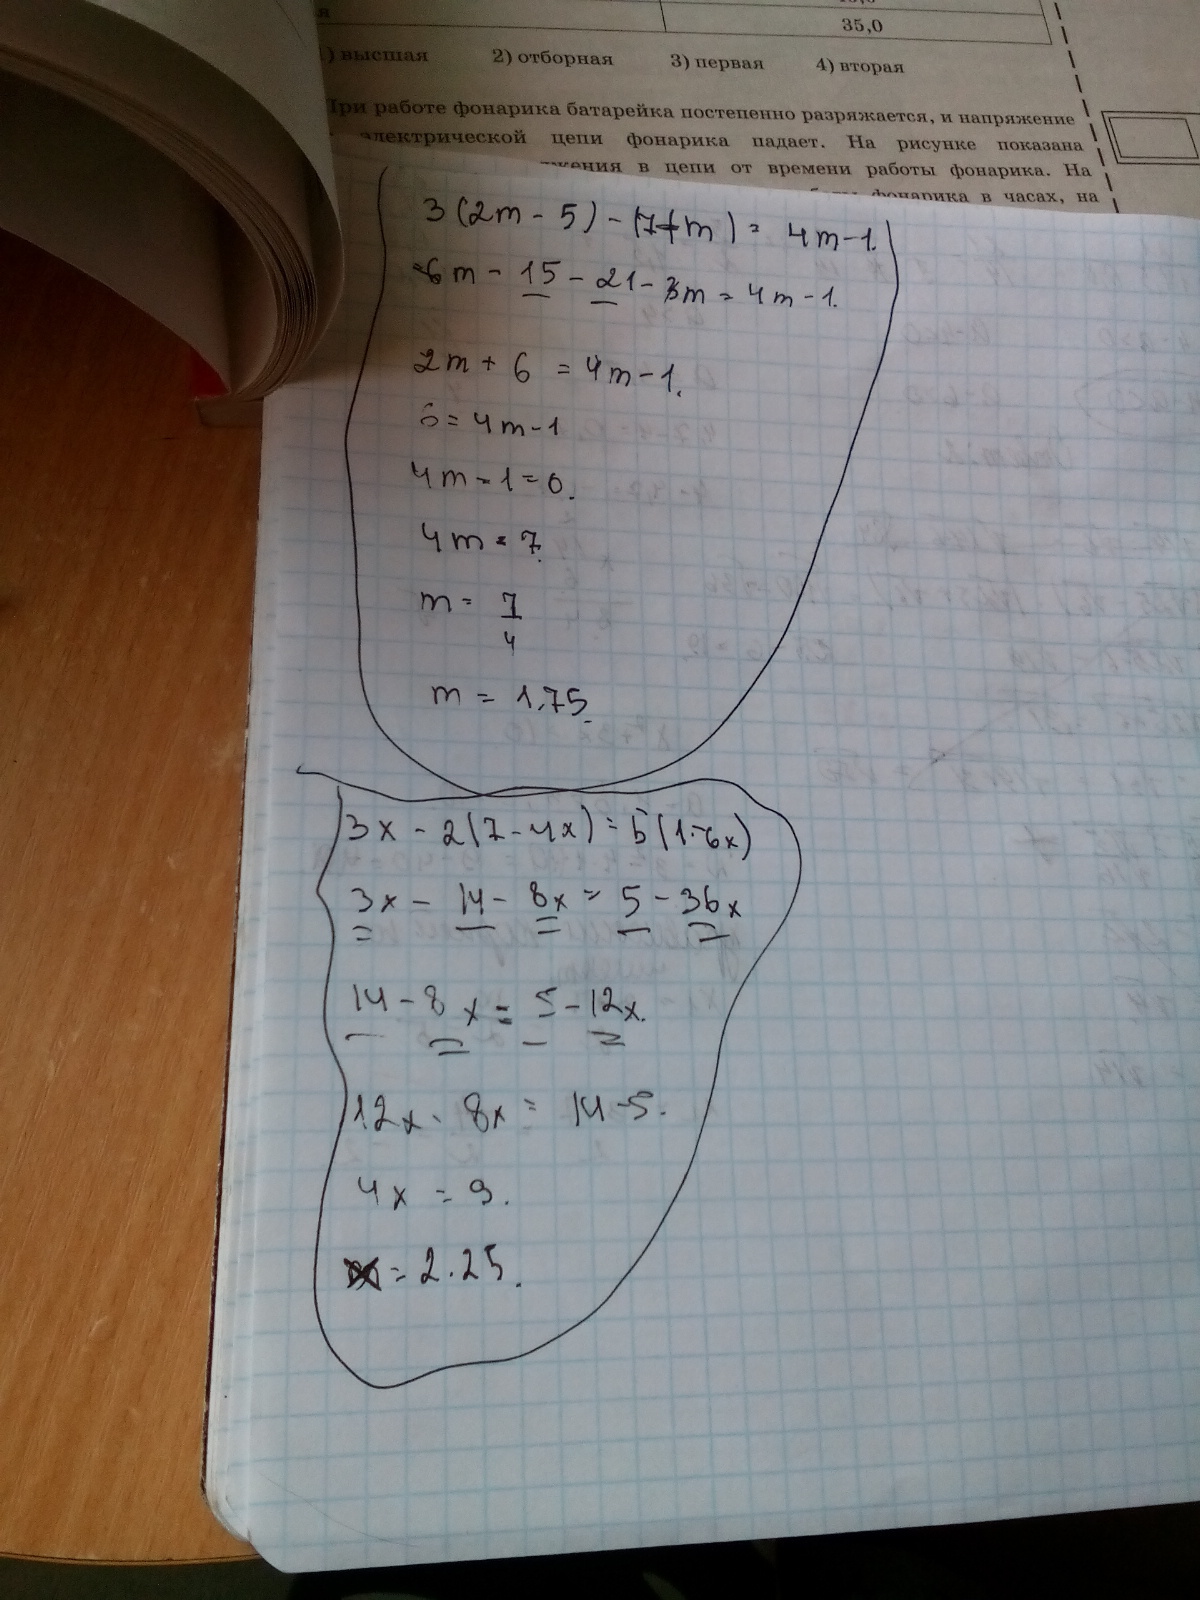 35,0
1) высшая 2) отборная 3) первая 4) вторая
При работе фонарика батарейка постепенно разряжается, и напряжение
электрической цепи фонарика падает. На рисунке показана
в цепи от времени работы фонарика. На
фонарика в часах, на
3(2m - 5) - (7+m) = 4m-1.
6m - 15 - 21 - 3m = 4m - 1.
2m + 6 = 4m-1.
6 = 4m-1
4m-1=6.
4m = 7
m = 7/4
m = 1.75.
3x - 2(7-4x) = 5(1-6x)
3x - 14 - 8x = 5 - 36x
14 - 8x = 5 - 12x.
12x - 8x = 14-5.
4x = 9.
= 2.25.